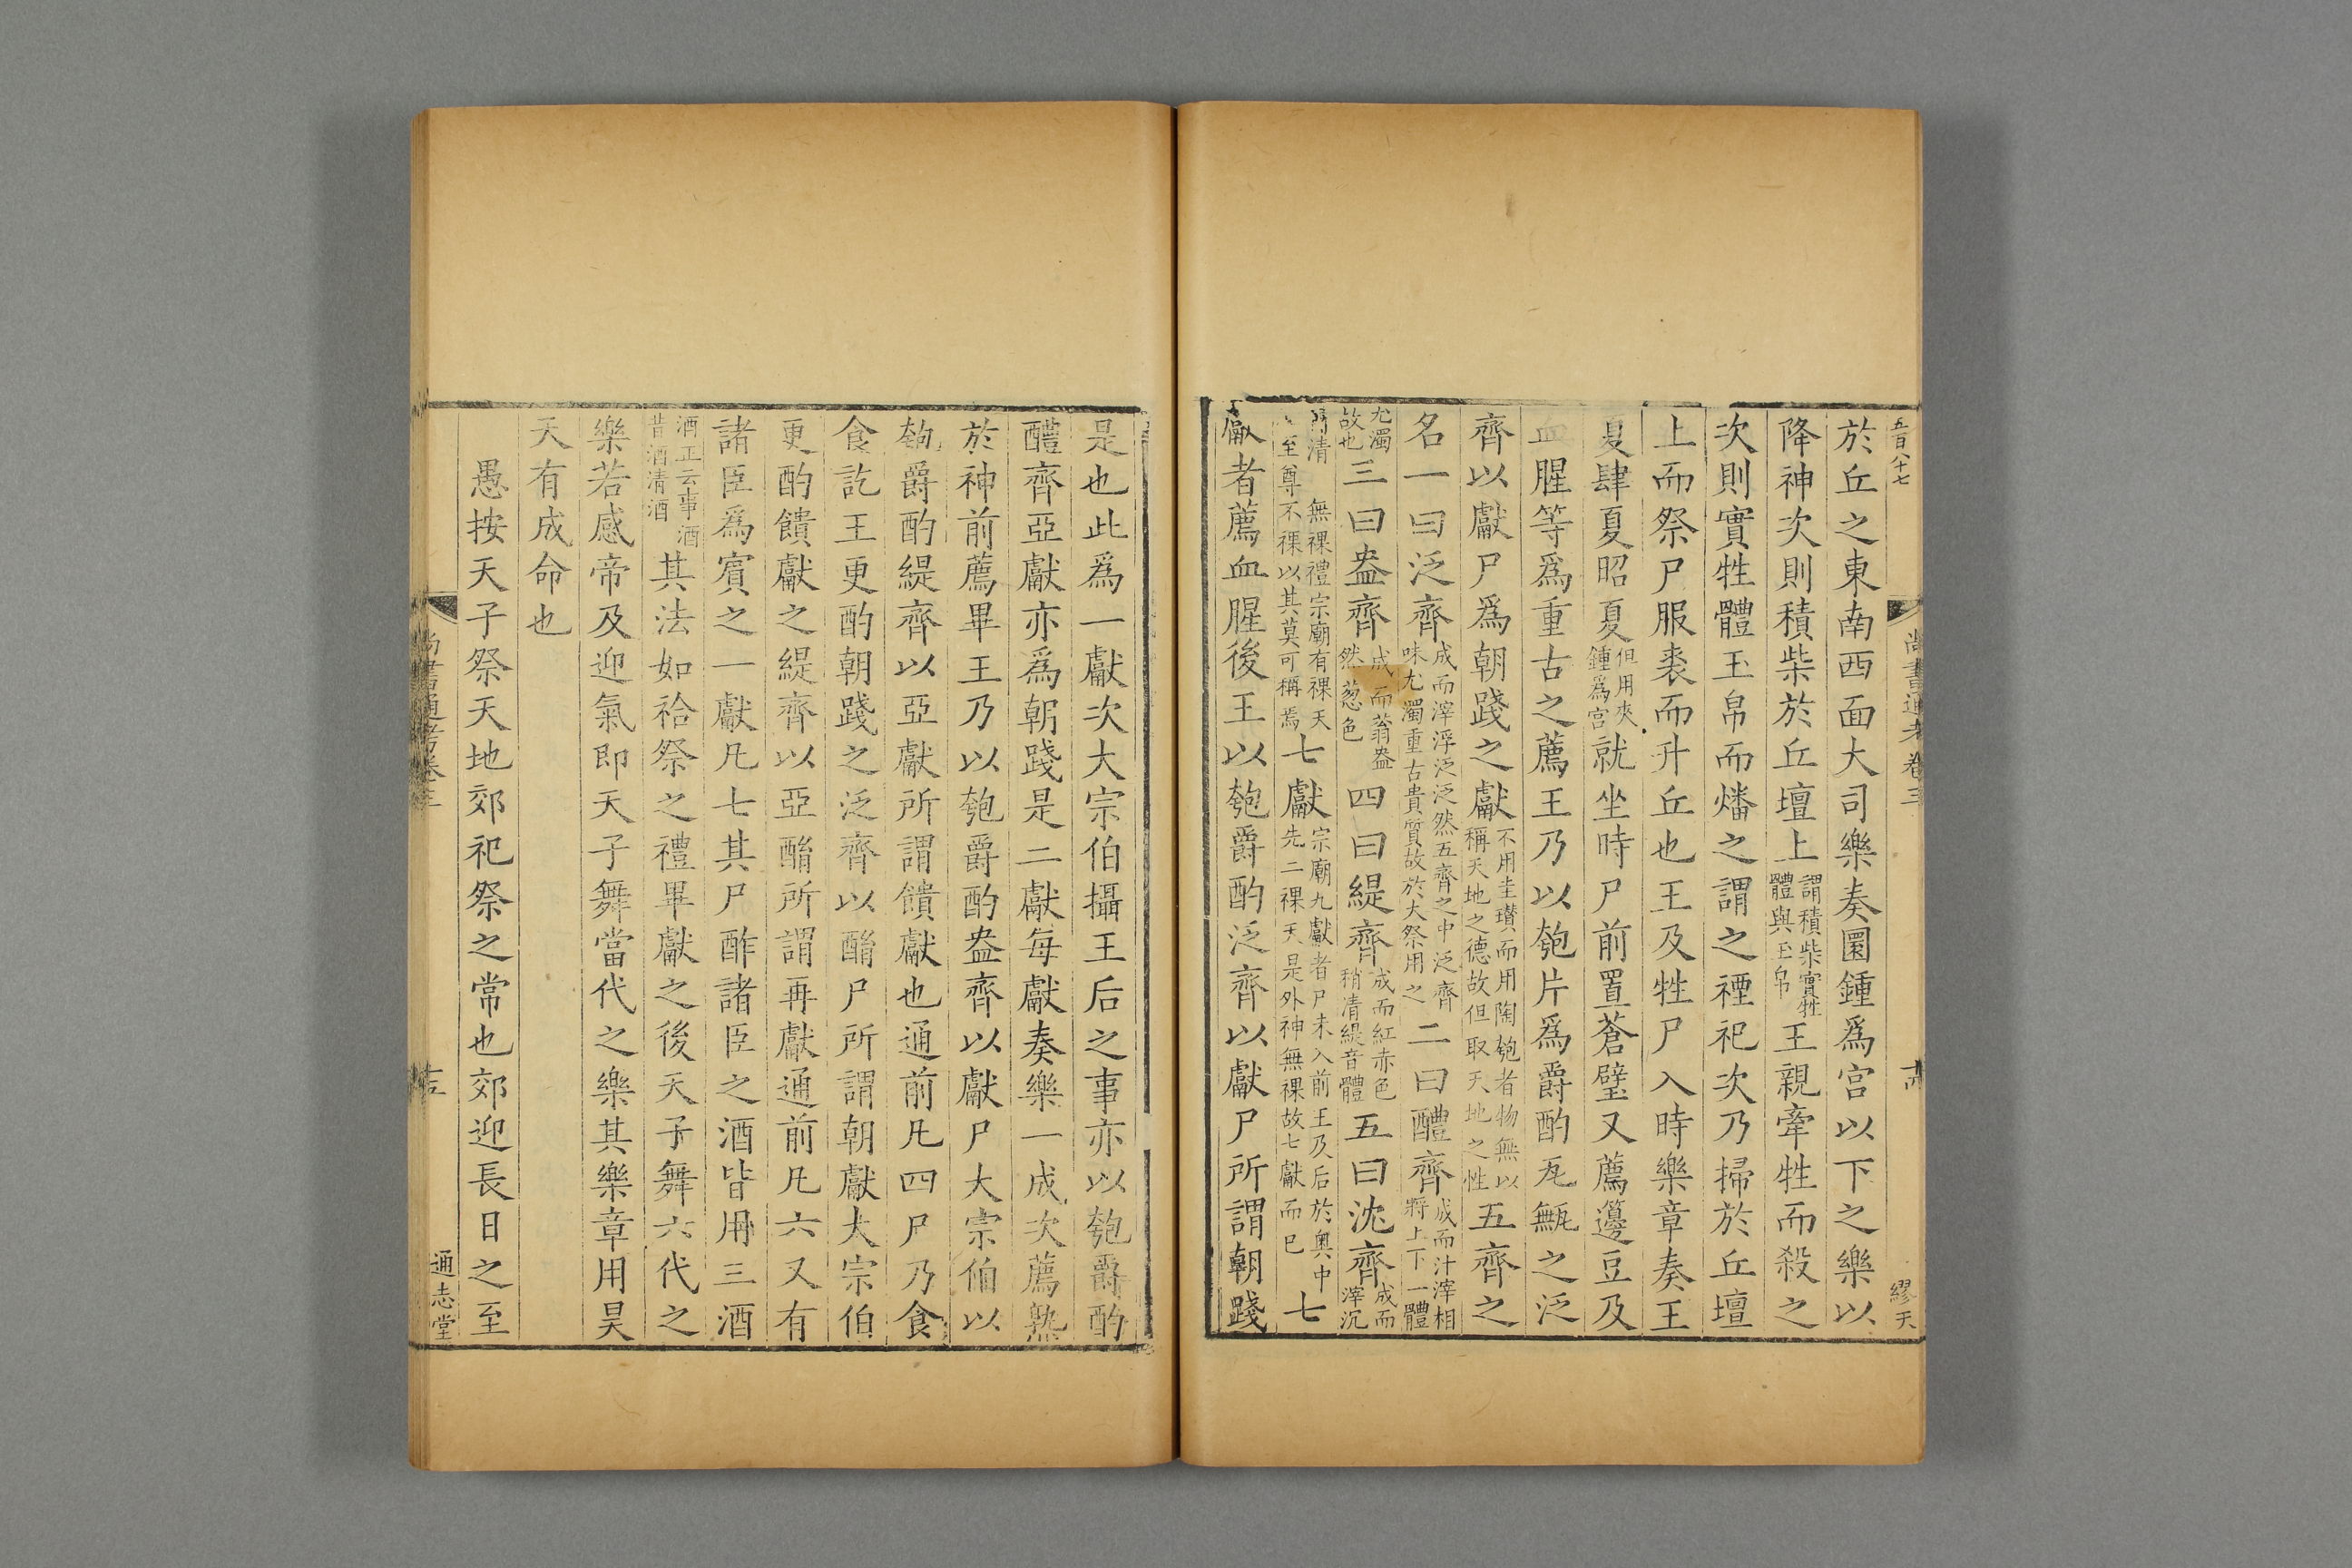 五百八十七
尚書通考卷三
繆天
於丘之東南西面大司樂奏圜鍾爲宮以下之樂以
降神次則積柴於丘壇上謂積柴實牲體與玉帛王親牽牲而殺之
次則實牲體玉帛而燔之謂之禋祀次乃掃於丘壇
上而祭尸服裘而升丘也王及牲尸入時樂章奏王
夏肆夏昭夏但用夾鍾爲宮就坐時尸前置蒼璧又薦籩豆及
血腥等爲重古之薦王乃以匏片爲爵酌瓦甒之泛
齊以獻尸爲朝踐之獻不用圭瓚而用陶匏者物無以稱天地之德故但取天地之性五齊之
名一曰泛齊成而滓浮泛泛然五齊之中泛齊味尤濁重古貴質故於大祭用之二曰醴齊成而汁滓相將上下一體
尤濁故也三曰盎齊成而蓊盎然葱色四曰緹齊成而紅赤色稍清緹音體五曰沈齊成而滓沉
清無祼禮宗廟有祼天至尊不祼以其莫可稱焉七獻宗廟九獻者尸未入前王及后於奧中先二祼天是外神無祼故七獻而已七
獻者薦血腥後王以匏爵酌泛齊以獻尸所謂朝踐
是也此爲一獻次大宗伯攝王后之事亦以匏爵酌
醴齊亞獻亦爲朝踐是二獻每獻奏樂一成次薦熟
於神前薦畢王乃以匏爵酌盎齊以獻尸大宗伯以
匏爵酌緹齊以亞獻所謂饋獻也通前凡四尸乃食
食訖王更酌朝踐之泛齊以酳尸所謂朝獻大宗伯
更酌饋獻之緹齊以亞酳所謂再獻通前凡六又有
諸臣爲賓之一獻凡七其尸酢諸臣之酒皆用三酒
酒正云事酒昔酒清酒其法如祫祭之禮畢獻之後天子舞六代之
樂若感帝及迎氣即天子舞當代之樂其樂章用昊
天有成命也
愚按天子祭天地郊祀祭之常也郊迎長日之至
尚書通考卷三
十五
通志堂